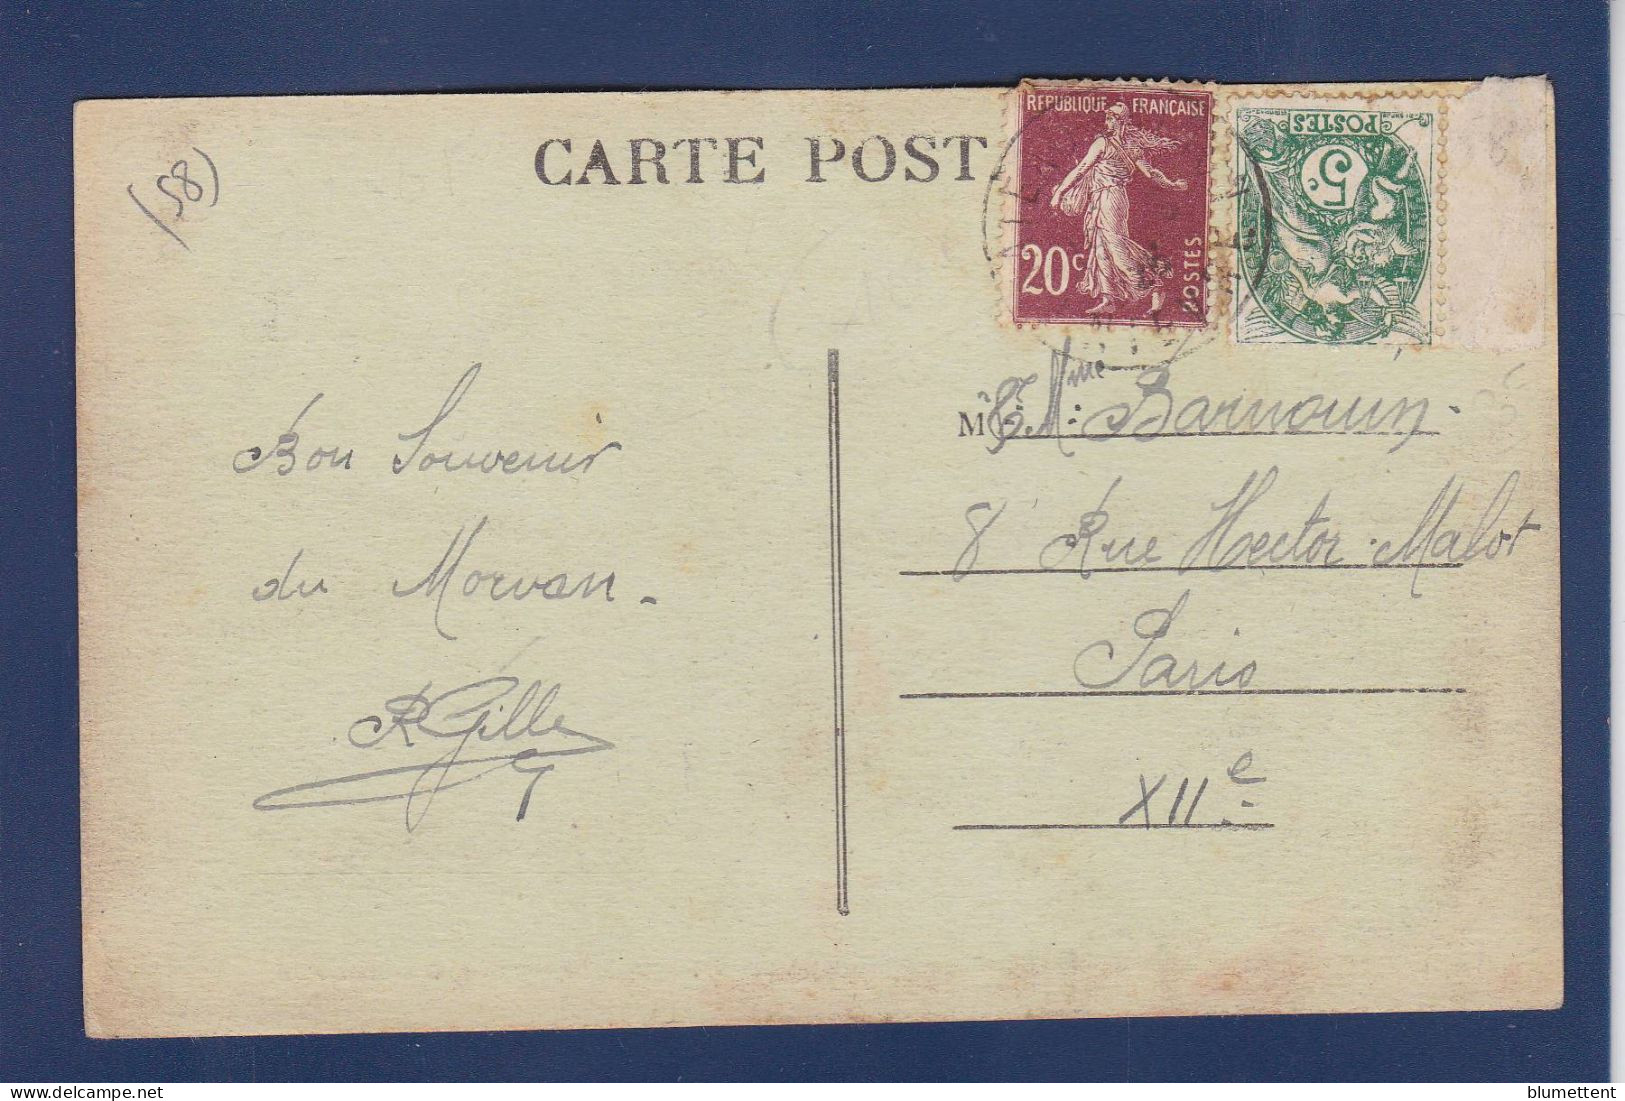 (58)
CARTE POST
REPUBLIQUE FRANÇAISE
20c
POSTES
POSTES
5c
Bon Souvenir
du Morvan -
R Gille
M
Mme Barnouin -
8 Rue Hector Malot
Paris
XIIe
blumettent